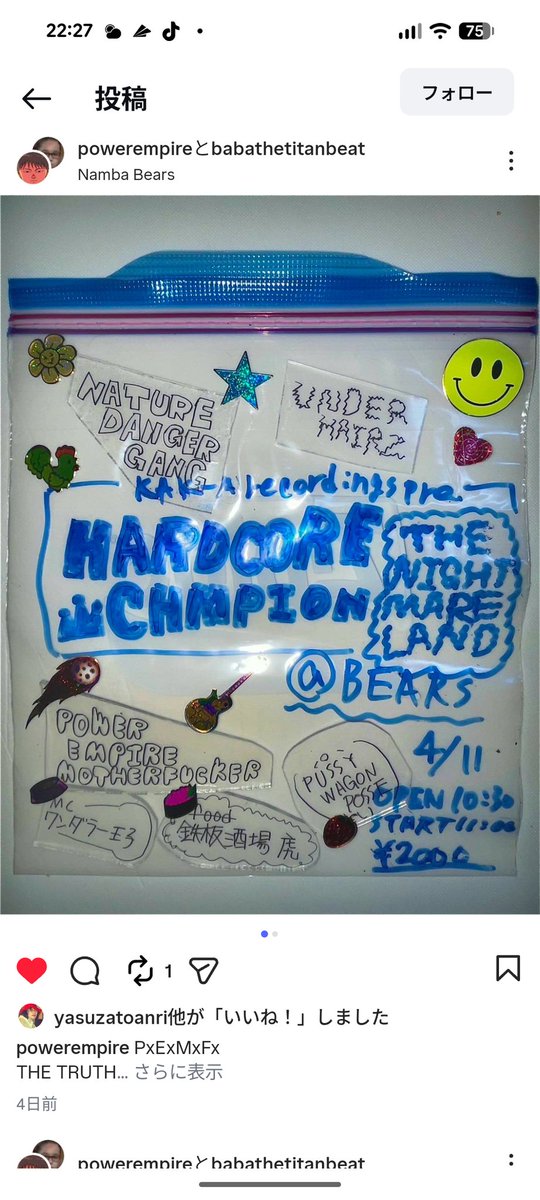 22:27
75
投稿
フォロー
powerempireとbabathetitanbeat
Namba Bears
NATURE
DANGER
GANG
UNDER
HAIRZ
KAKA recordings pre.
HARDCORE
CHMPION
THE
NIGHT
MARE
LAND
@BEARS
POWER
EMPIRE
MOTHERFUCKER
PUSSY
WAGON
POSSE
4/11
OPEN 10:30
START 11:00
¥2000
MC
ワンダラー王3
Food
鉄板酒場 虎
1
yasuzatoanri他が「いいね！」しました
powerempire PxExMxFx
THE TRUTH... さらに表示
4日前
powerempireとbabathetitanbeat